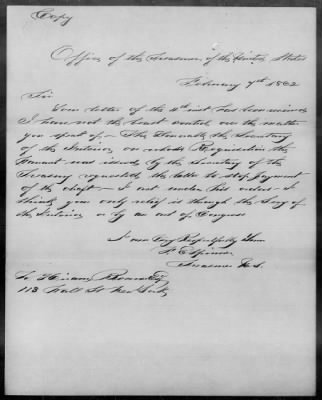 Copy
Office of the Treasurer of the United States
February 7th 1862
Sir
Your letter of the 4th inst has been received
I have not the least control over the matter
you speak of. The Honorable the Secretary
of the Interior, on whose Requisition the
Warrant was issued by the Secretary of the
Treasury requested the latter to stop payment
of the draft – I act under his orders – I
think your only relief is through the Secy of
the Interior or by an act of Congress
I am Very Respectfully Yours
F. E. Spinner
Treasurer U.S.
To Hiram
113 Wall St New York